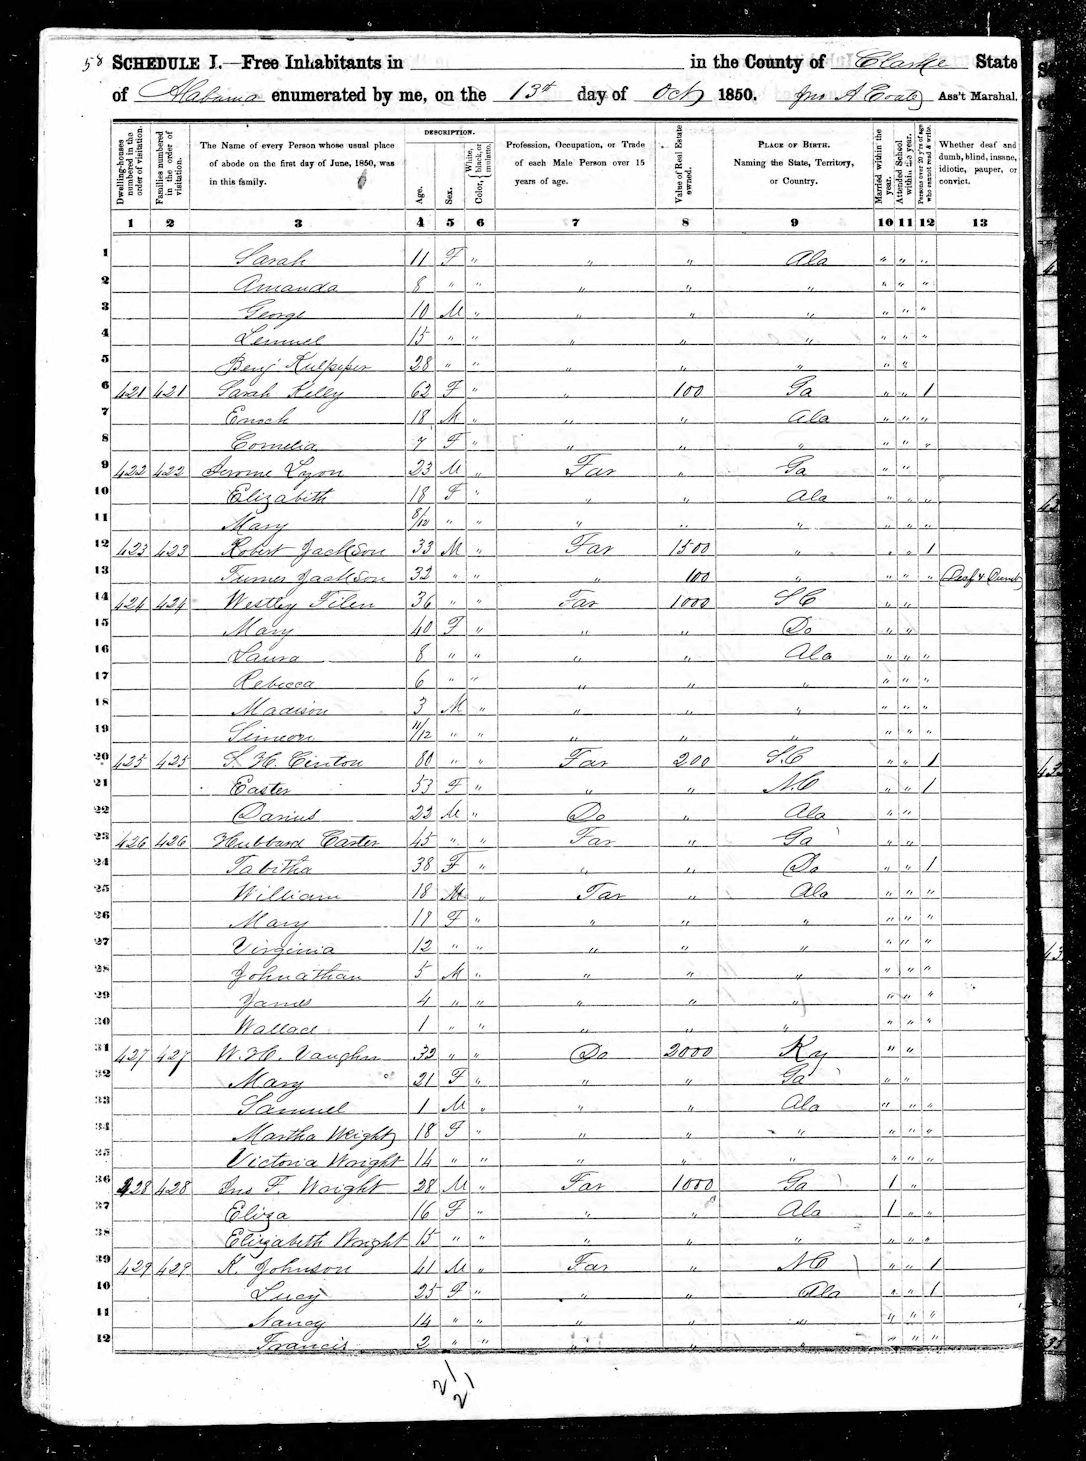 58 SCHEDULE I.—Free Inhabitants in in the County of Clarke State
of Alabama enumerated by me, on the 13th day of Oct 1850. Jno A Coate Ass't Marshal.
Dwelling-houses numbered in the order of visitation.
Families numbered in the order of visitation.
The Name of every Person whose usual place of abode on the first day of June, 1850, was in this family.
DESCRIPTION.
Age.
Sex.
Color, White, black, or mulatto.
Profession, Occupation, or Trade of each Male Person over 15 years of age.
Value of Real Estate owned.
PLACE OF BIRTH. Naming the State, Territory, or Country.
Married within the year.
Attended School within the year.
Persons over 20 y'rs of age who cannot read & write.
Whether deaf and dumb, blind, insane, idiotic, pauper, or convict.
1 2 3 4 5 6 7 8 9 10 11 12 13
1 Sarah 11 F " " " Ala " " "
2 Amanda 8 " " " " " " " "
3 George 10 M " " " " " " "
4 Lemuel 15 " " " " " " " "
5 Benj Kulpeper 28 " " " " " " "
6 421 421 Sarah Kelly 62 F " " 100 Ga " " 1
7 Enoch 18 M " " " Ala " " "
8 Cornelia 7 F " " " " " " "
9 422 422 Jerome Lyon 23 M " Far " Ga " "
10 Elizabith 18 F " " " Ala " " "
11 Mary 8/12 " " " " " " " "
12 423 423 Robert Jackson 33 M " Far 1500 " " " 1
13 Turner Jackson 32 " " " 100 " " " " Deaf & Dumb
14 424 424 Westley Tilen 36 " " Far 1000 S.C " "
15 Mary 40 F " " " Do " "
16 Laura 8 " " " " Ala " " "
17 Rebecca 6 " " " " " " " "
18 Madison 3 M " " " " " " "
19 Simeon 11/12 " " " " " " " "
20 425 425 S. H. Cinton 80 " " Far 200 S.C " " 1
21 Easter 53 F " " " N.C " " 1
22 Darius 23 M " Do " Ala " "
23 426 426 Hubbard Carter 45 " " Far " Ga " "
24 Tabitha 38 F " " " Do " " 1
25 William 18 M " Far " Ala " " "
26 Mary 17 F " " " " " " "
27 Virginia 12 " " " " " " " "
28 Johnathan 5 M " " " " " " "
29 James 4 " " " " " " " "
30 Wallace 1 " " " " " " " "
31 427 427 W. H. Vaughn 32 " " Do 2000 Ky " "
32 Mary 21 F " " " Ga " "
33 Samuel 1 M " " " Ala " " "
34 Martha Wright 18 F " " " " " " "
35 Victoria Wright 14 " " " " " " " "
36 428 428 Jno F. Wright 28 M " Far 1000 Ga 1 "
37 Eliza 16 F " " " Ala 1 " "
38 Elizabeth Wright 15 " " " " " " " "
39 429 429 K. Johnson 41 M " Far " N.C " " 1
40 Lucy 25 F " " " Ala " " 1
41 Nancy 14 " " " " " " " "
42 Francis 2 " " " " " " " "
21
21